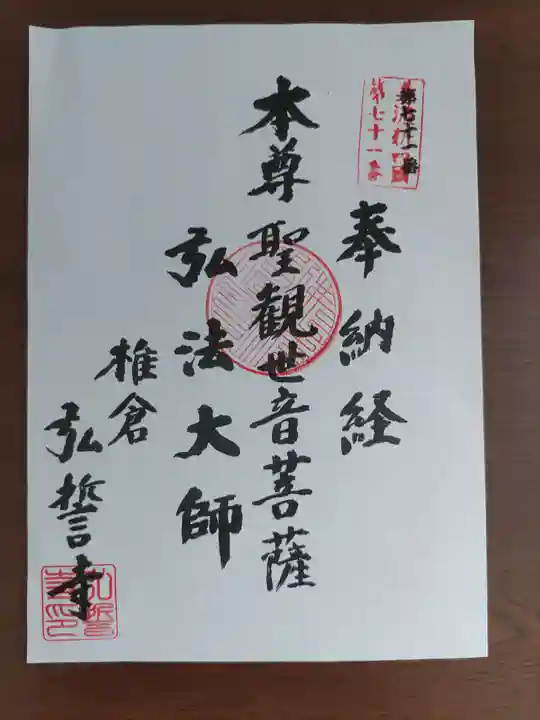 第七十一番
第七十一番
奉納経
本尊聖観世音菩薩
弘法大師
椎倉
弘誓寺